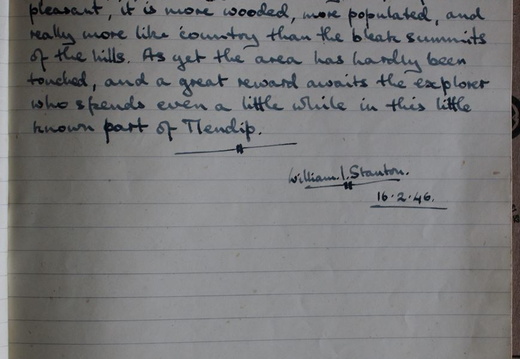 pleasant, it is more wooded, more populated, and
really more like country than the bleak summits
of the hills. As yet the area has hardly been
touched, and a great reward awaits the explorer
who spends even a little while in this little
known part of Mendip.
William.I.Stanton.
16.2.46.